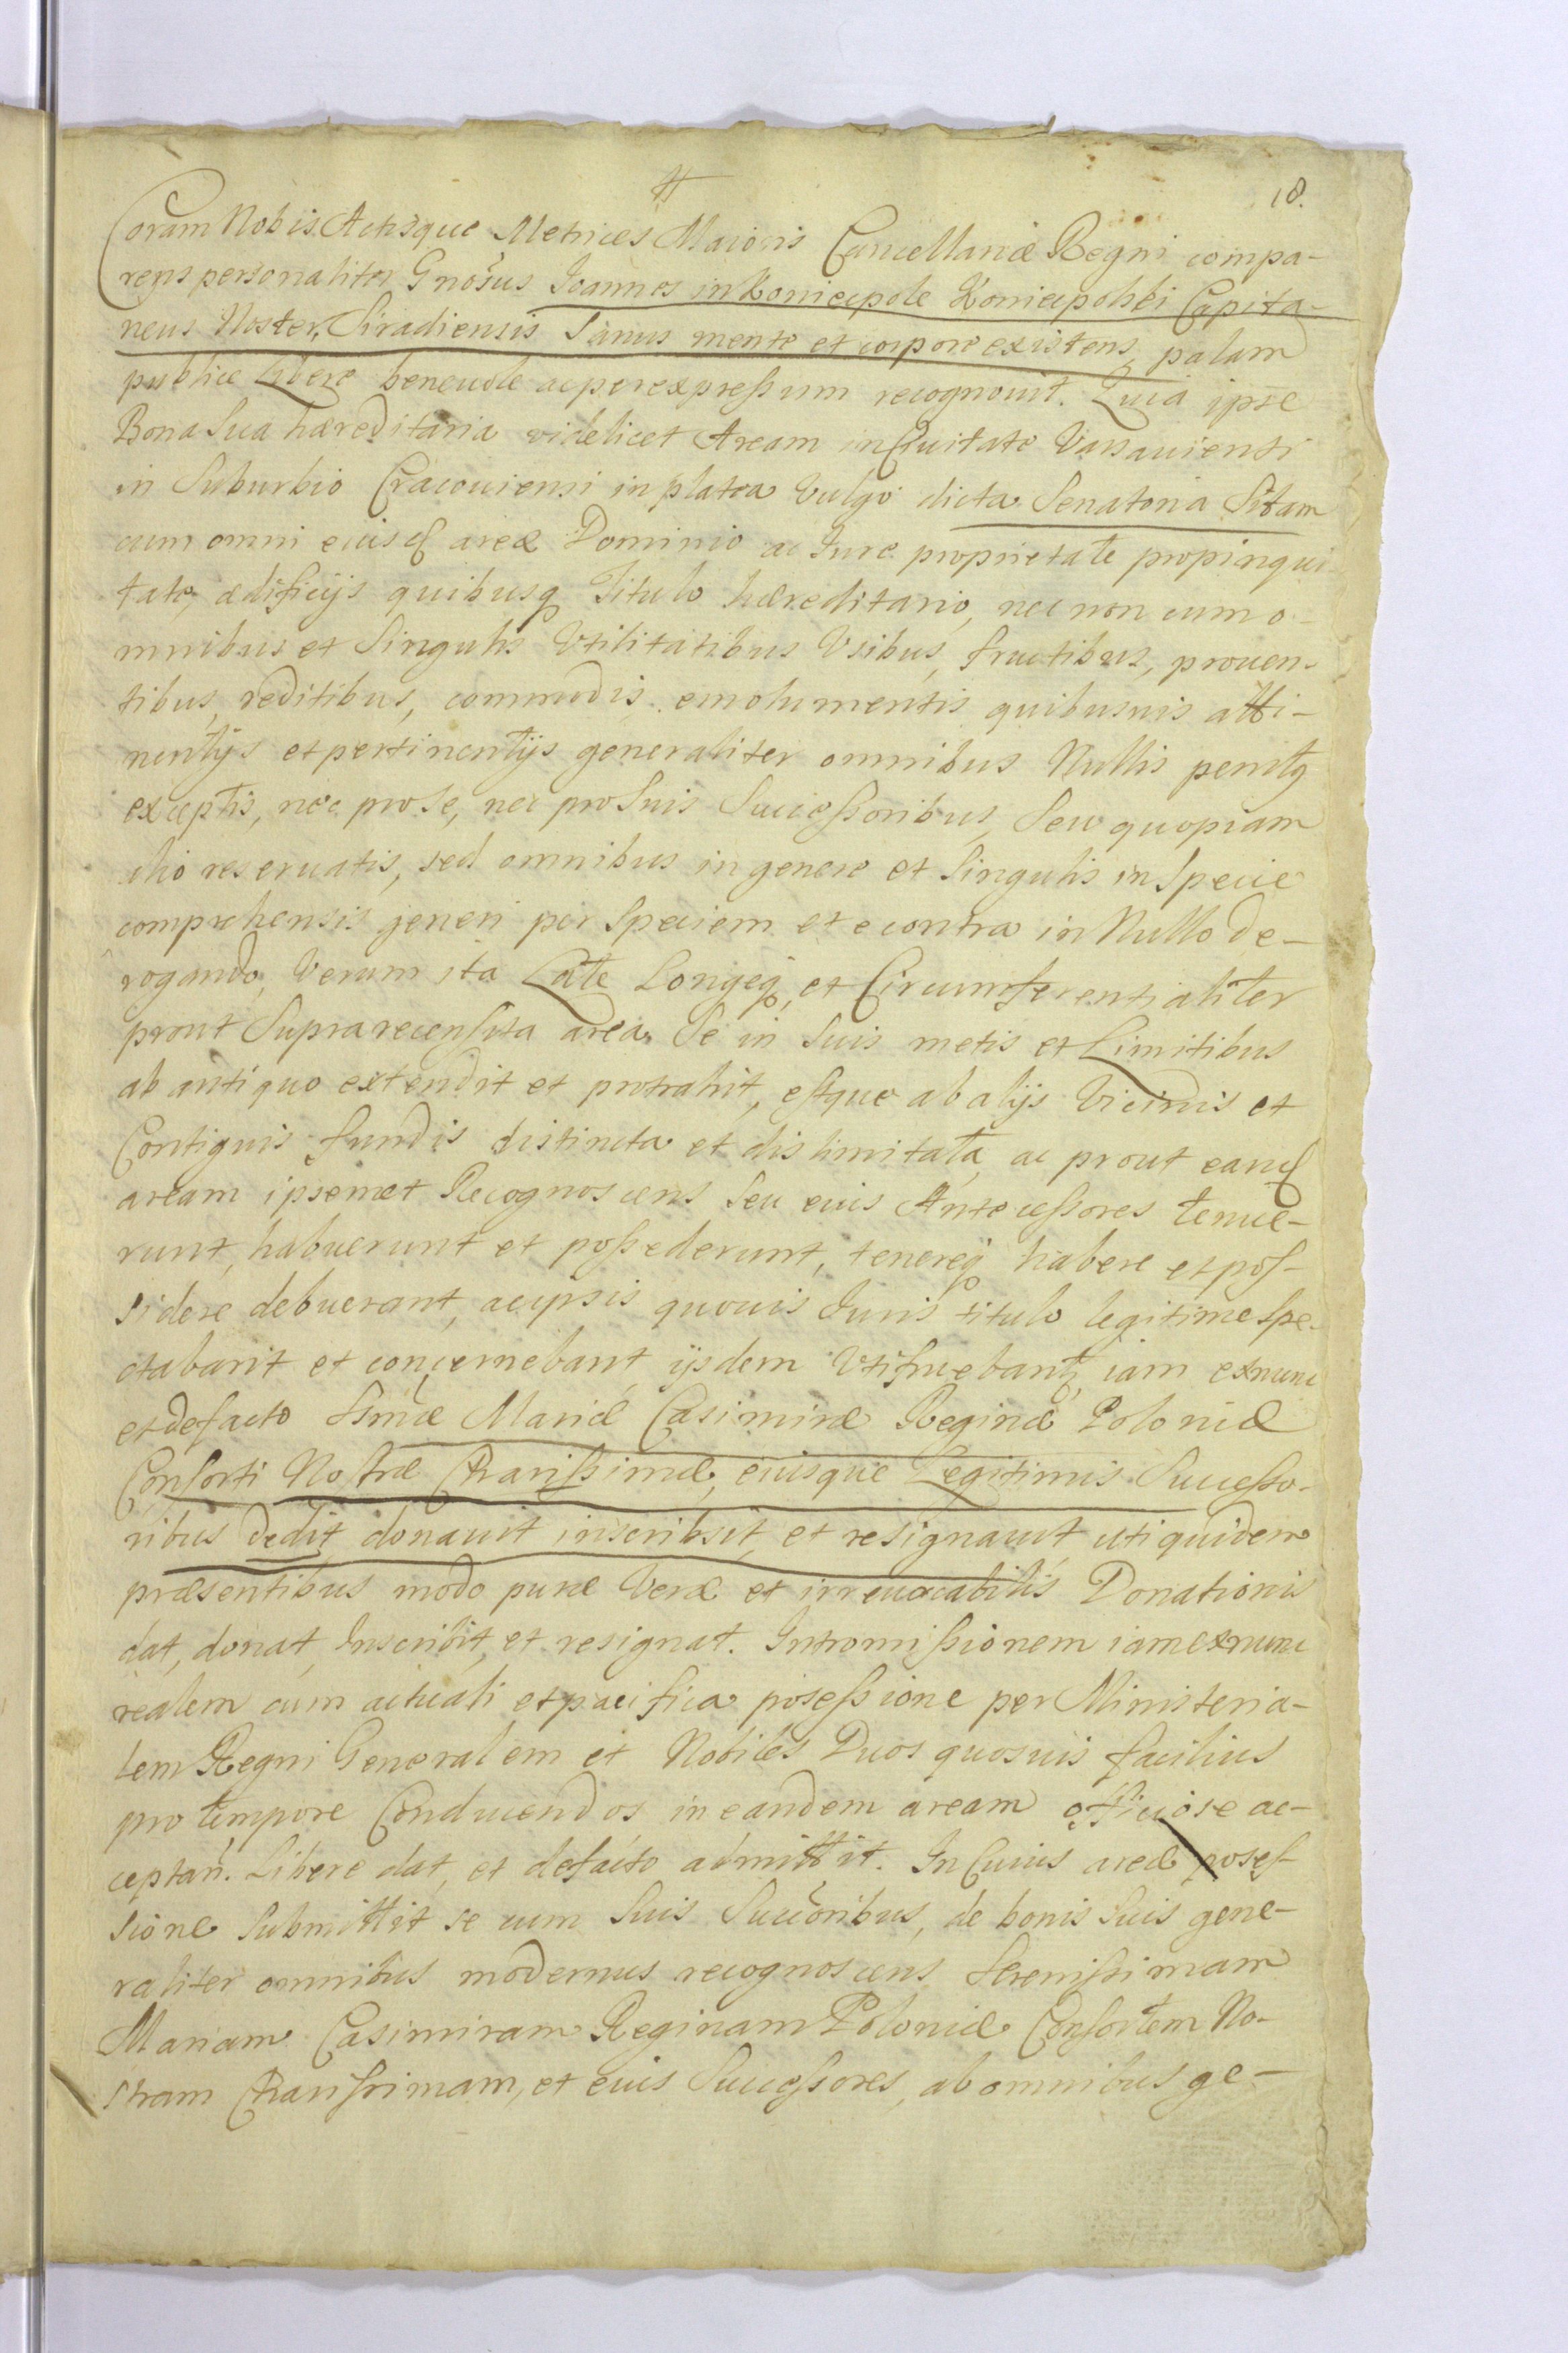 18.
Coram Nobis Actisque Metrices Maioris Cancellariæ Regni compa-
rens personaliter Gnosus Ioannes in Koniecpole Koniecpolski Capita-
neus Noster Siradiensis Sanus mente et corpore existens, palam
publice Libere beneuole ac per expressum recognouit. Quia ipse
Bona Sua hæreditaria videlicet Aream in Ciuitate Varsauiensi
in Suburbio Cracouiensi in platea Vulgo dicta Senatoria Sitam
cum omni eiusq areæ Dominio ac Iure proprietate propinqui
tate, ædificijs quibusq Titulo hæreditario, nec non cum o-
mnibus et Singulis Vtilitatibus Vsibus, fructibus, prouen-
tibus, reditibus, commodis emolumentis quibusuis atti-
nentijs et pertinentijs generaliter omnibus Nullis penitq
exceptis, nec pro se, nec pro Suis Successoribus, Seu quopiam
alio reseruatis, sed omnibus in genere et Singulis in Specie
comprehensis generi per Speciem et e contra in Nullo de-
rogando, Verum ita Late Longeq, et Circumferentialiter
prout Supra recensita area Se in Suis metis et Limitibus
ab antiquo extendit et protrahit, estque ab alijs Vicinis et
Contiguis fundis distincta et dislimitata, ac prout eandq
aream ipsemet Recognoscens Seu eius Antecessores tenue-
runt, habuerunt et possederunt, tenereq habere et pos-
sidere debuerant, ac ipsis quouis Iuris titulo legitime spe-
ctabant et concernebant, ijsdem Vtifruebantq iam exnunc
et de facto Ssmæ Mariæ Casimiræ Reginæ Poloniæ
Consorti Nostræ Charissimæ, eiusque Legitimis Successo-
ribus dedit donauit inscribsit, et resignauit uti quidem
præsentibus modo puræ Veræ et irreuocabilis Donationis
dat, donat, Inscribit, et resignat. Intromissionem iam exnunc
realem cum actuali et pacifica posessione per Ministeria-
lem Regni Generalem et Nobiles Duos quosuis facilius
pro tempore Conducendos in eandem aream officiose ac-
ceptan. Libere dat, et defacto admittit. In Cuius areæ poses-
sione Submittit se cum Suis Succoribus, de bonis Suis gene-
raliter omnibus modernus recognoscens Serenissimam
Mariam Casimiram Reginam Poloniæ Consortem No-
stram Charissimam, et eius Successores, ab omnibus ge-